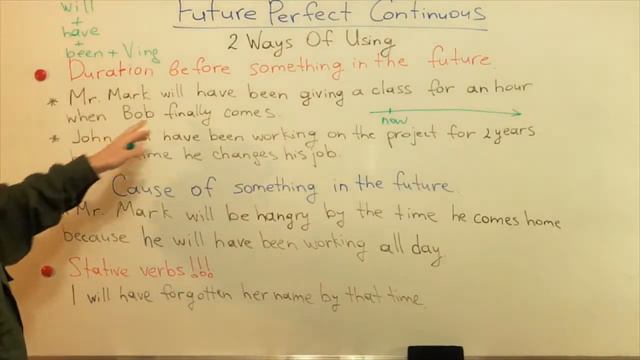 Future Perfect Continuous
will
+
have
+
been + Ving
2 Ways Of Using
Duration Before something in the future
* Mr. Mark will have been giving a class for an hour
when Bob finally comes.
now
* John have been working on the project for 2 years
time he changes his job.
Cause of something in the future.
Mr. Mark will be hangry by the time he comes home
because he will have been working all day
Stative verbs!!!
I will have forgotten her name by that time.